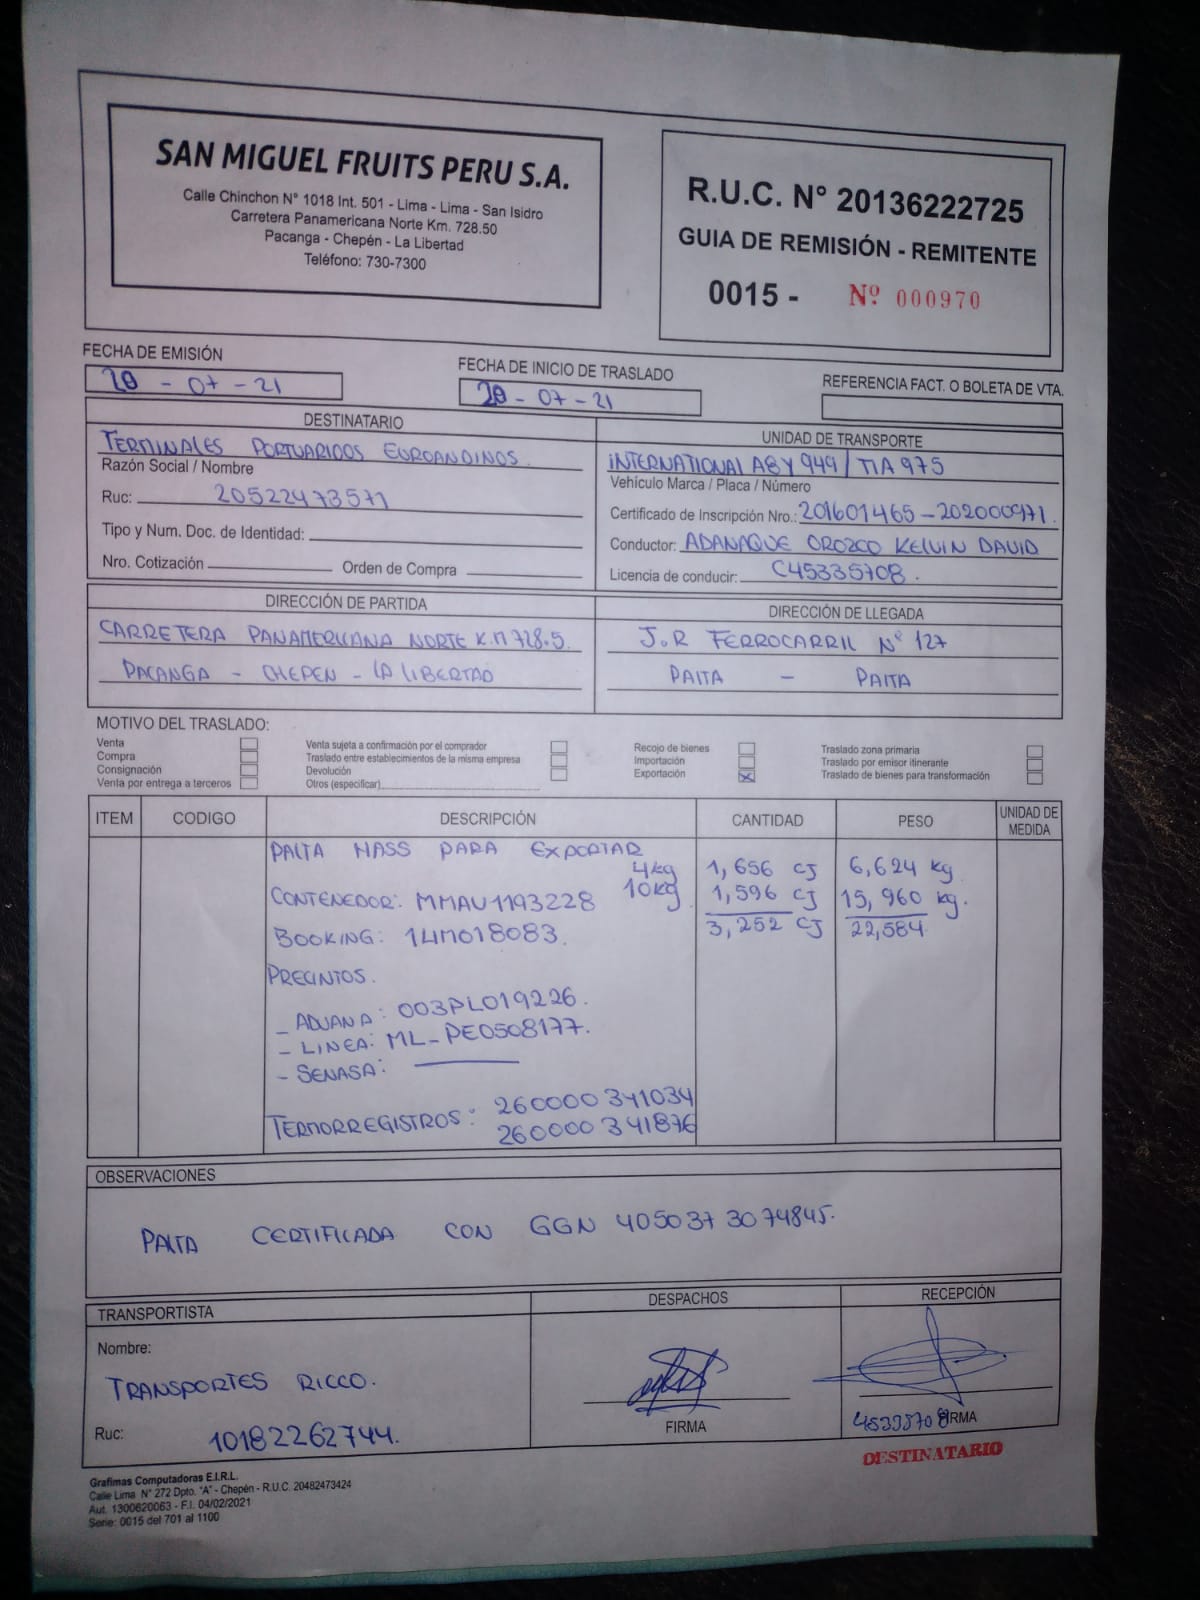 SAN MIGUEL FRUITS PERU S.A.
Calle Chinchon N° 1018 Int. 501 - Lima - Lima - San Isidro
Carretera Panamericana Norte Km. 728.50
Pacanga - Chepén - La Libertad
Teléfono: 730-7300
R.U.C. N° 20136222725
GUIA DE REMISIÓN - REMITENTE
0015 - Nº 000970
FECHA DE EMISIÓN
20 - 07 - 21
FECHA DE INICIO DE TRASLADO
20 - 07 - 21
REFERENCIA FACT. O BOLETA DE VTA.
DESTINATARIO
TERMINALES PORTUARIOS EUROANDINOS
Razón Social / Nombre
Ruc: 20522473571
Tipo y Num. Doc. de Identidad:
Nro. Cotización Orden de Compra
UNIDAD DE TRANSPORTE
INTERNATIONAL A8Y 949 / TIA 975
Vehículo Marca / Placa / Número
Certificado de Inscripción Nro.: 201601465-202000971.
Conductor: ADANAQUE OROZCO KELVIN DAVID
Licencia de conducir: C45335708.
DIRECCIÓN DE PARTIDA
CARRETERA PANAMERICANA NORTE K.M 728.5
PACANGA - CHEPEN - LA LIBERTAD
DIRECCIÓN DE LLEGADA
J.R FERROCARRIL Nº 127
PAITA - PAITA
MOTIVO DEL TRASLADO:
Venta
Compra
Consignación
Venta por entrega a terceros
Venta sujeta a confirmación por el comprador
Traslado entre establecimientos de la misma empresa
Devolución
Otros (especificar)
Recojo de bienes
Importación
Exportación X
Traslado zona primaria
Traslado por emisor itinerante
Traslado de bienes para transformación
ITEM CODIGO DESCRIPCIÓN CANTIDAD PESO UNIDAD DE MEDIDA
PALTA HASS PARA EXPORTAR
4kg 1,656 CJ 6,624 kg
CONTENEDOR: MMAU1193228 10kg 1,596 CJ 15,960 kg.
BOOKING: 14M018083. 3,252 CJ 22,584
PRECINTOS.
- ADUANA: 003PL019226.
- LINEA: ML-PE0508177.
- SENASA: ———
TERMORREGISTROS: 260000341034
260000341876
OBSERVACIONES
PALTA CERTIFICADA CON GGN 4050373074845.
TRANSPORTISTA
Nombre:
TRANSPORTES RICCO.
Ruc: 10182262744.
DESPACHOS
FIRMA
RECEPCIÓN
45335708 FIRMA
DESTINATARIO
Grafimas Computadoras E.I.R.L.
Calle Lima N° 272 Dpto. "A" - Chepén - R.U.C. 20482473424
Aut. 1300620063 - F.I. 04/02/2021
Serie: 0015 del 701 al 1100